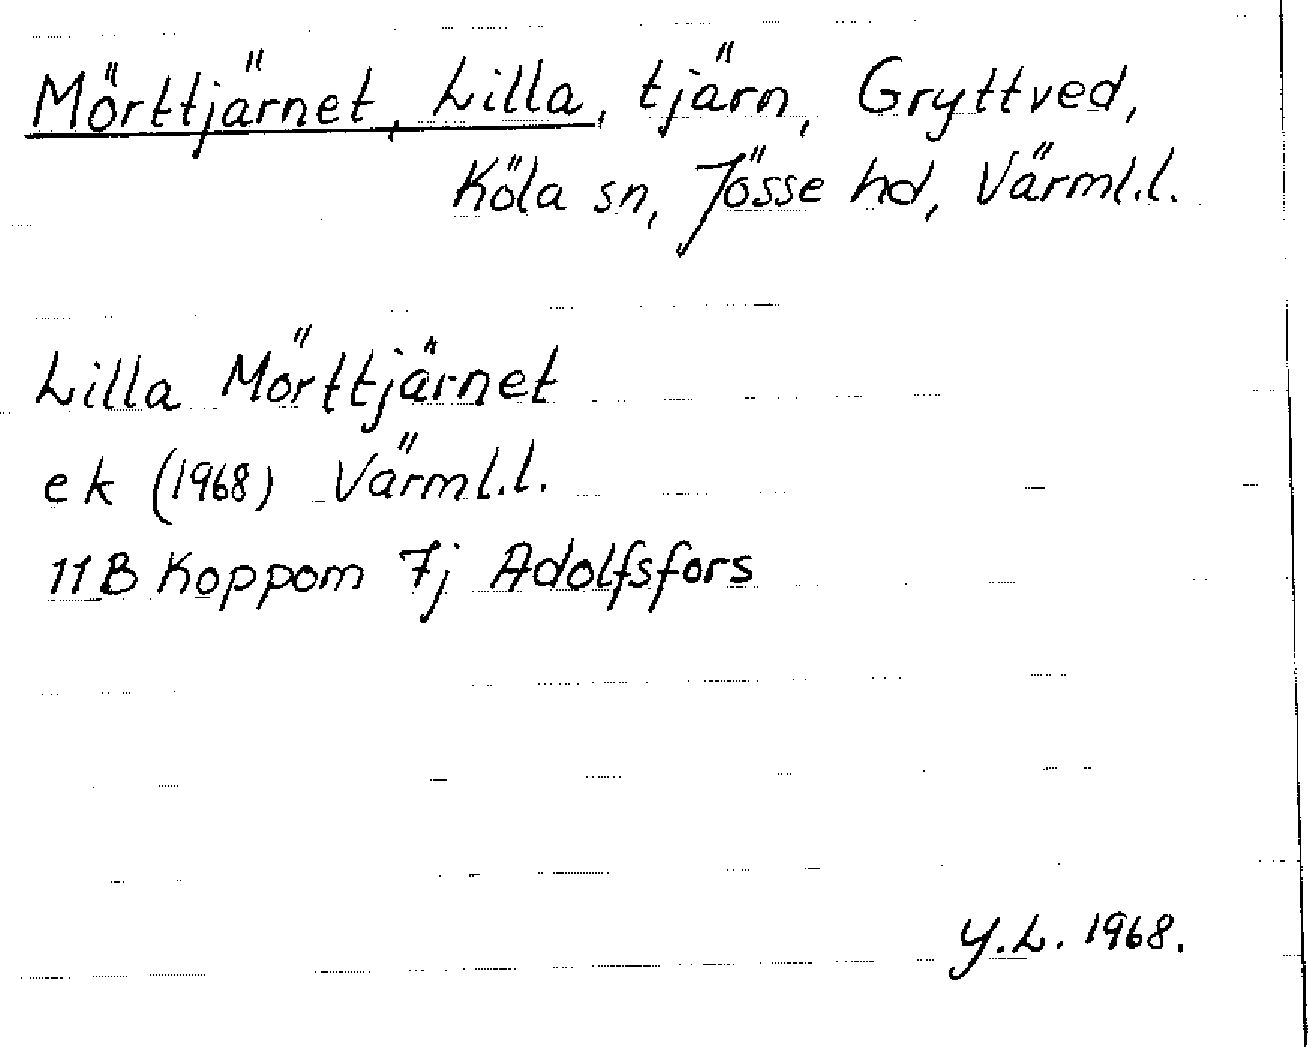 Mörttjärnet, Lilla, tjärn, Gryttved,
Köla sn, Jösse hd, Värml.l.
Lilla Mörttjärnet
ek (1968) Värml.l.
11B Koppom 7j Adolfsfors
Y.L. 1968.